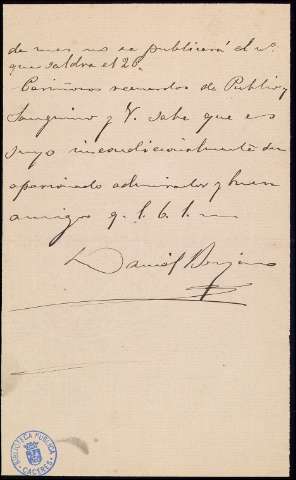 de mes no se publicará el nº
que saldrá el 20.
Cariñosos recuerdos de Publio y
Sanguino y V. sabe que es
suyo incondicionalmente su
apasionado admirador y buen
amigo q. l. b. l. m
Daniel Berjano
BIBLIOTECA PUBLICA
CACERES